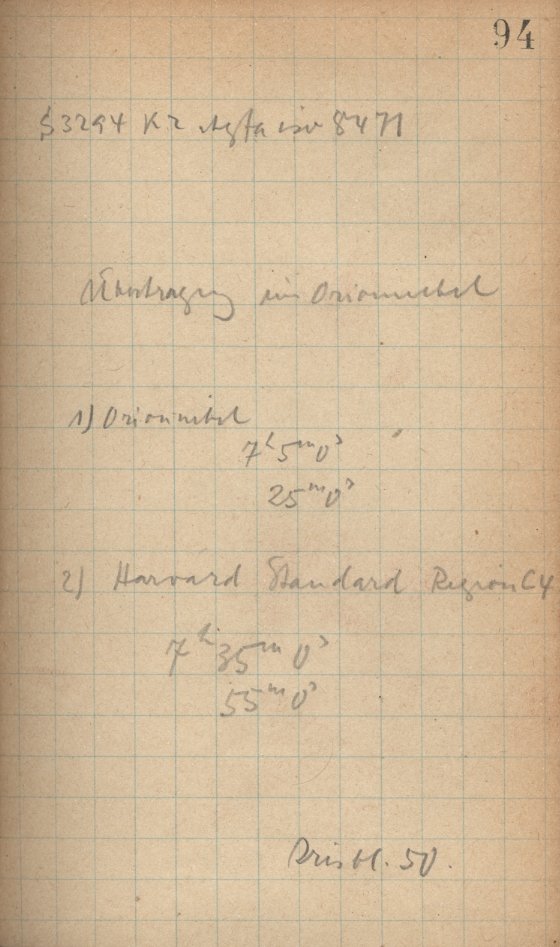 94
S3294 K2 Agfa iso 8471
Übertragung im Orionnebel
1) Orionnebel
7h 5m 0s
25m 0s
2) Harvard Standard Region C4
7h 35m 0s
55m 0s
Irisbl. 50.